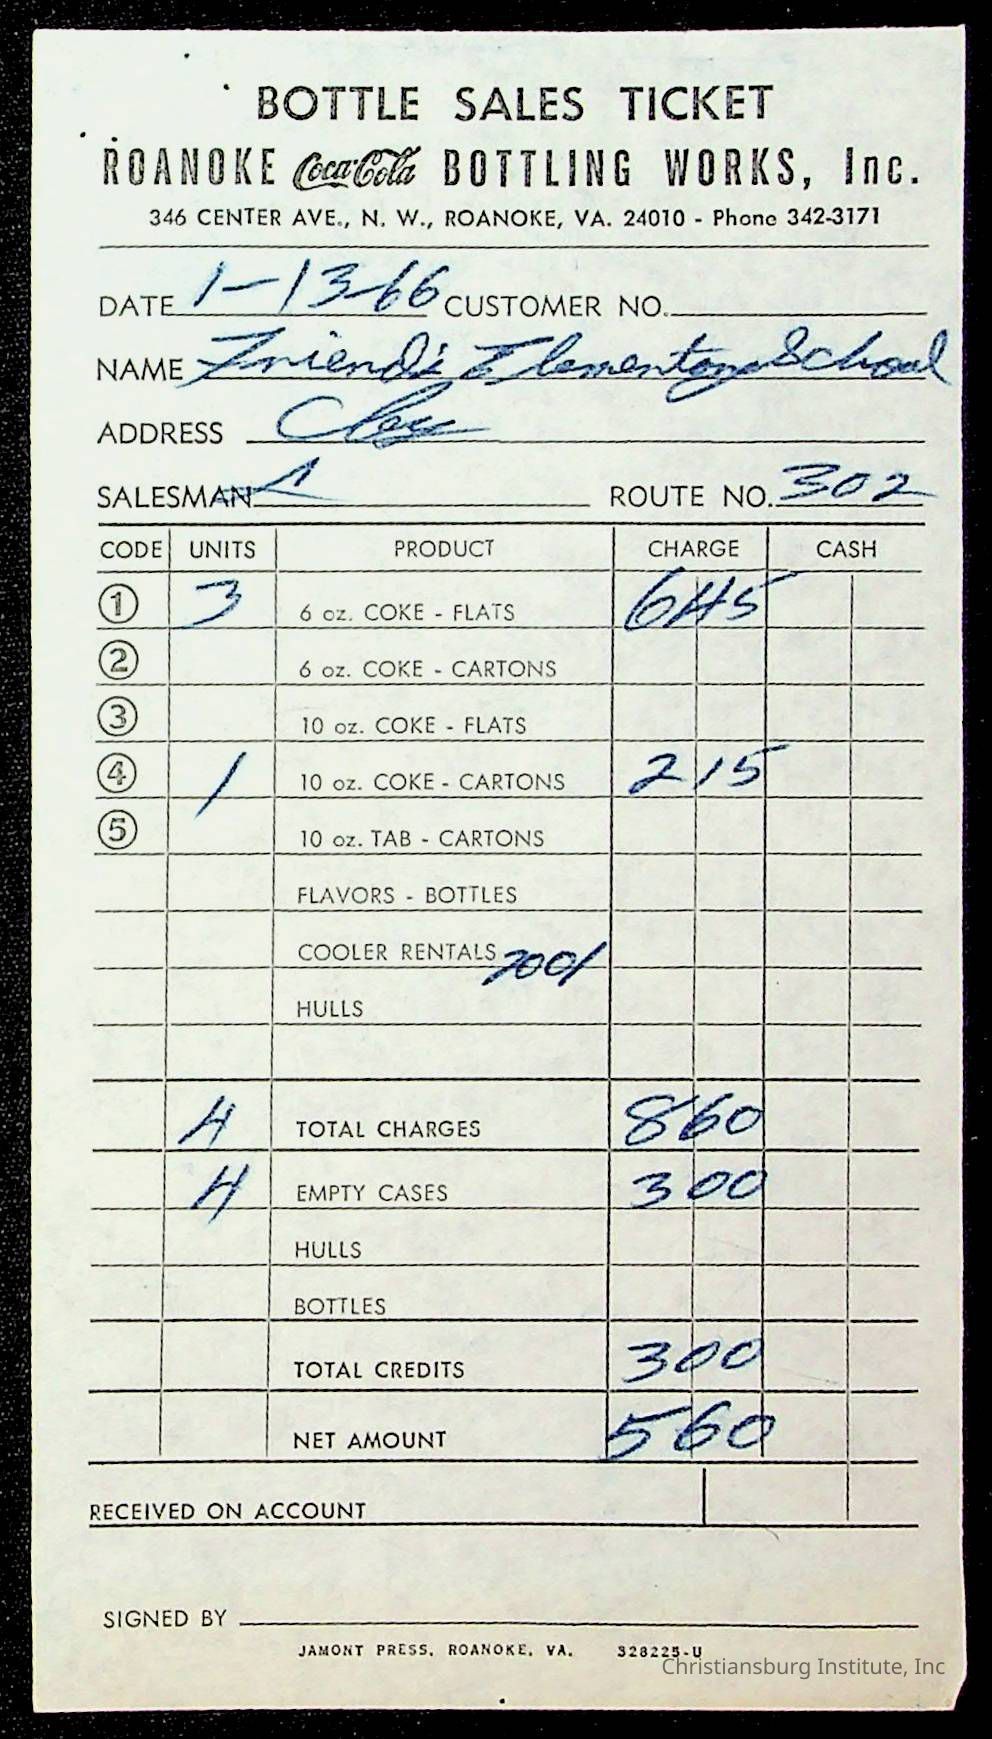 BOTTLE SALES TICKET
ROANOKE Coca-Cola BOTTLING WORKS, Inc.
346 CENTER AVE., N. W., ROANOKE, VA. 24010 - Phone 342-3171
DATE 1-13-66 CUSTOMER NO.
NAME Friends Elementary School
ADDRESS
SALESMAN ROUTE NO. 302
CODE UNITS PRODUCT CHARGE CASH
1 3 6 oz. COKE - FLATS 645
2 6 oz. COKE - CARTONS
3 10 oz. COKE - FLATS
4 1 10 oz. COKE - CARTONS 215
5 10 oz. TAB - CARTONS
FLAVORS - BOTTLES
COOLER RENTALS
HULLS
4 TOTAL CHARGES 860
4 EMPTY CASES 300
HULLS
BOTTLES
TOTAL CREDITS 300
NET AMOUNT 560
RECEIVED ON ACCOUNT
SIGNED BY
JAMONT PRESS, ROANOKE, VA. 328225-U
Christiansburg Institute, Inc